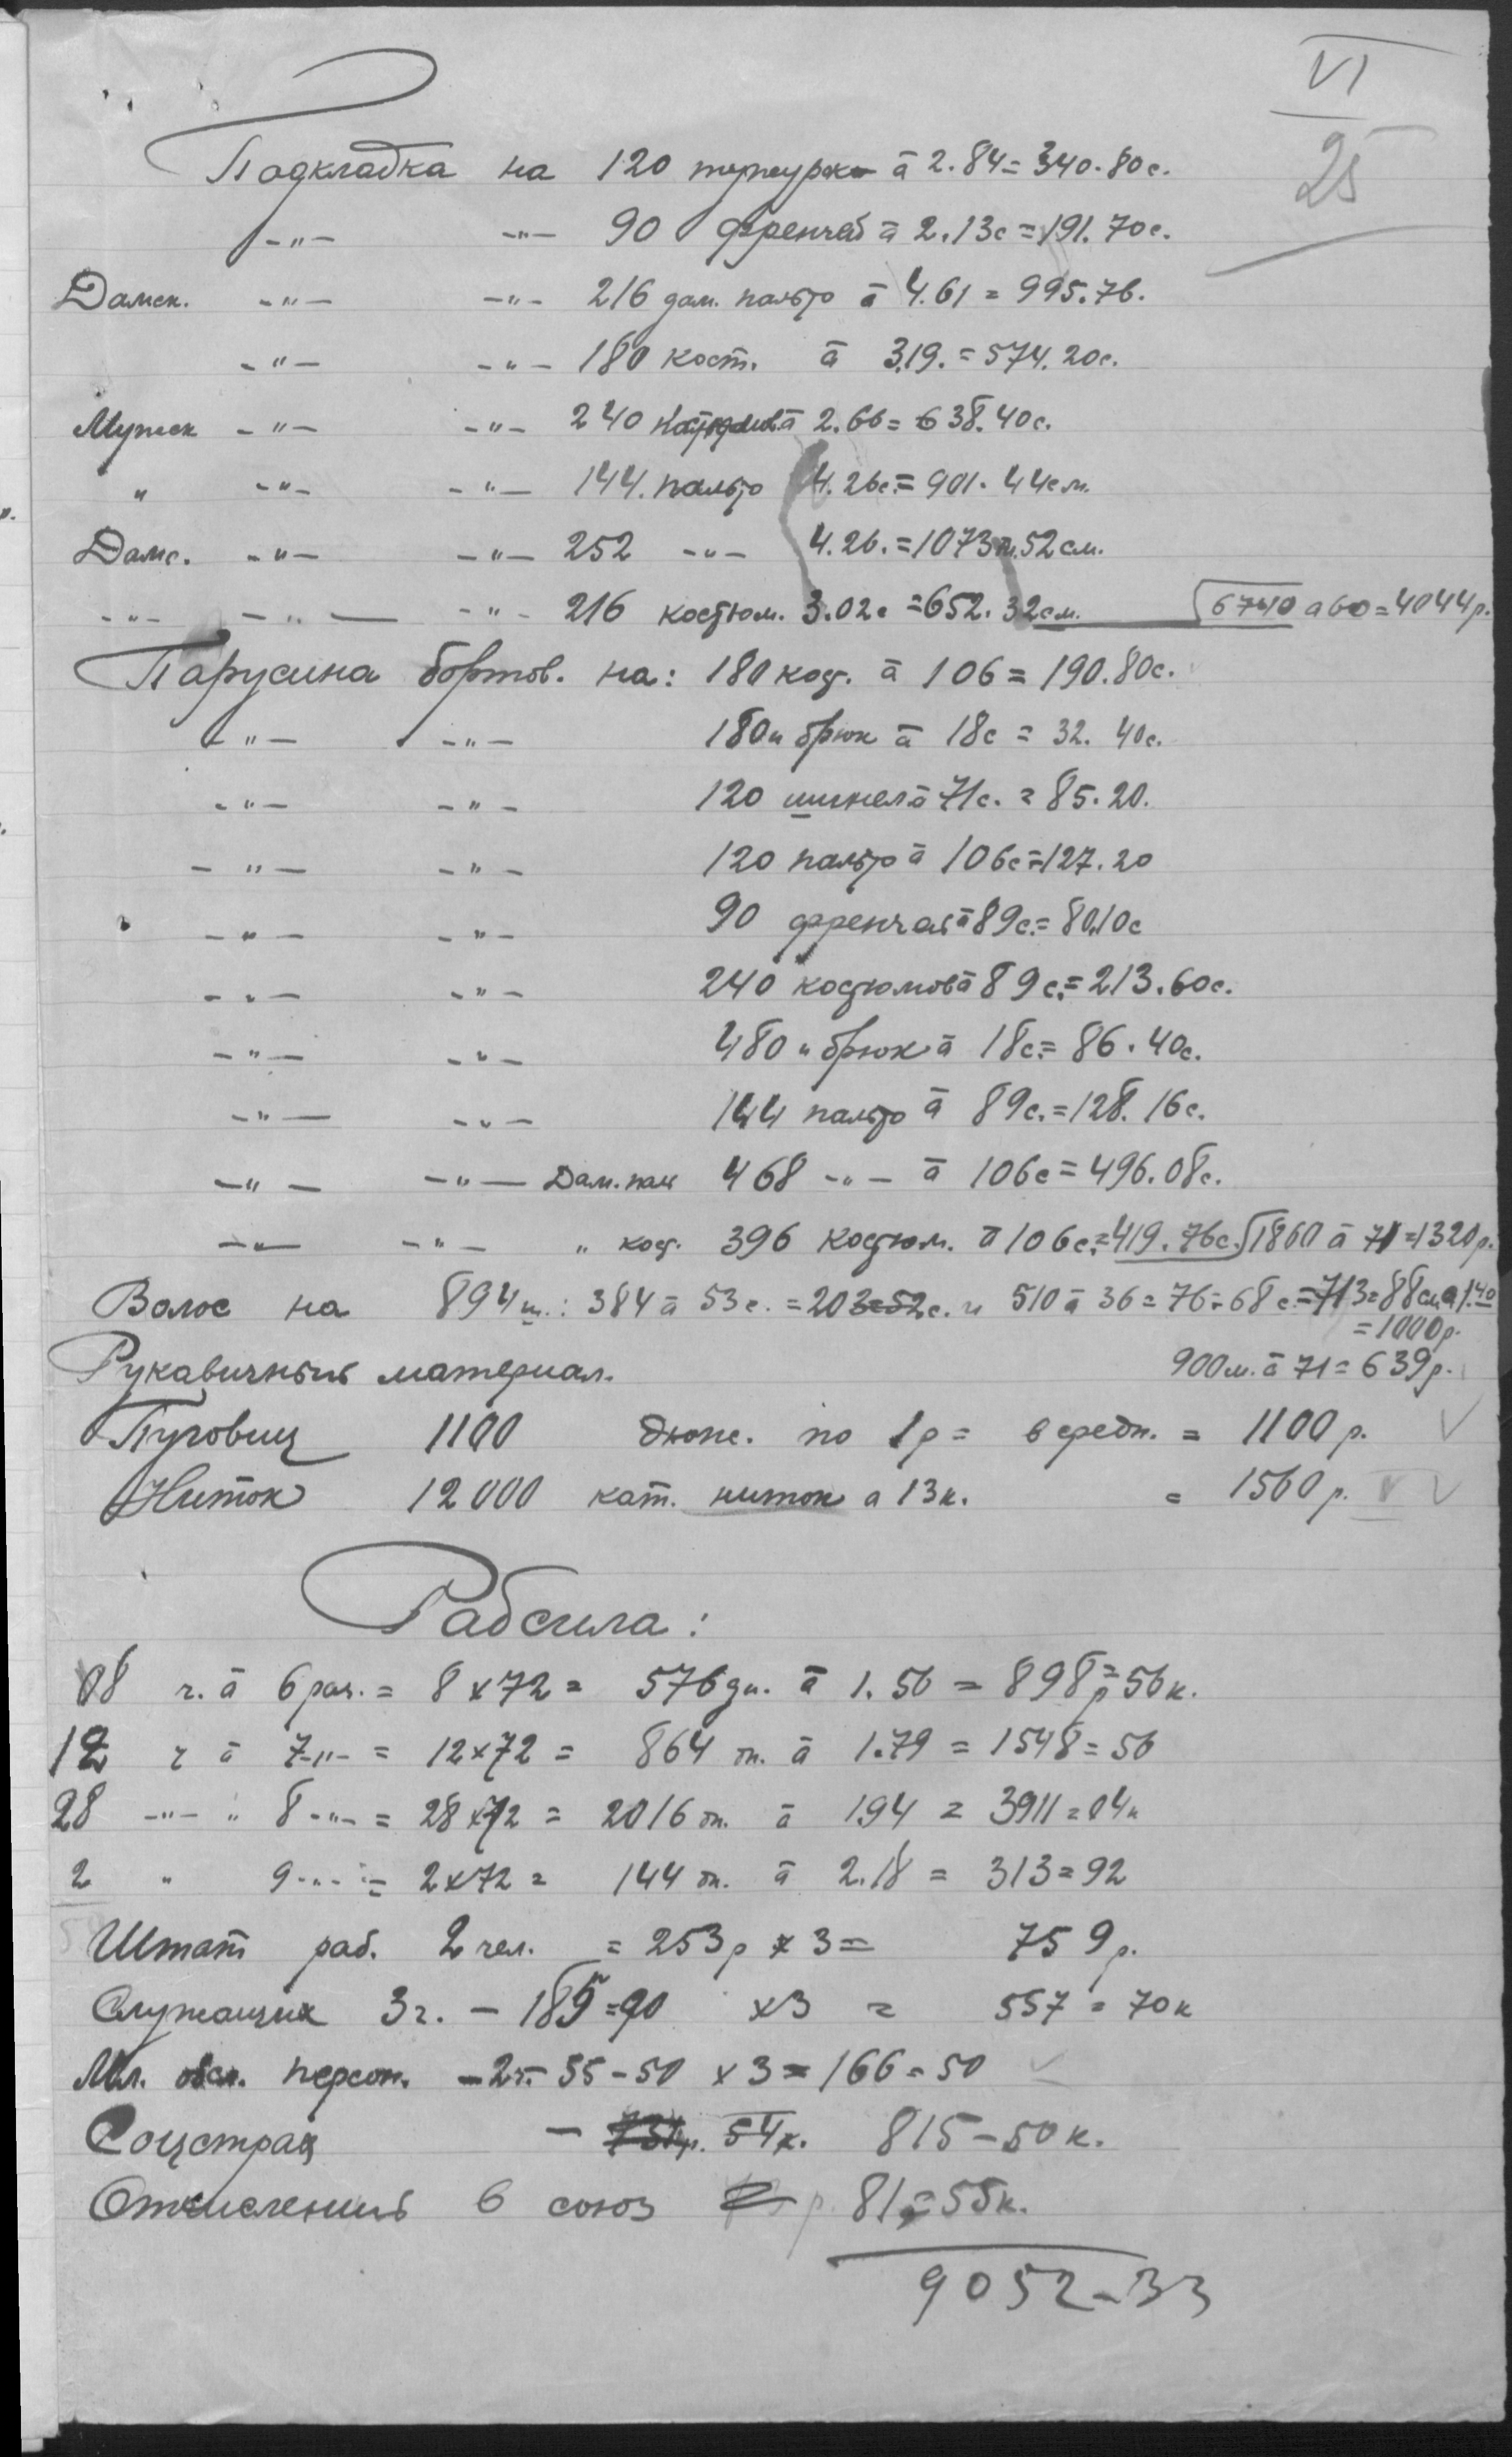 VI
25
Подкладка на 120 тужурк а 2.84 = 340.80с.
-"- -"- 90 френчей а 2.13с = 191.70с.
Дамск. -"- -"- 216 дам. пальто а 4.61 = 995.76.
-"- -"- 180 кост. а 3.19. = 574.20с.
Мужск -"- -"- 240 костюмов а 2.66 = 638.40с.
" -"- -"- 144. пальто 4.26с. = 901.44см.
Дамс. -"- -"- 252 -"- 4.26. = 1073м.52см.
-"- -"- -"- 216 костюм. 3.02с = 652.32см. 6740 а 60 = 4044р.
Парусина бортов. на: 180 кост. а 106 = 190.80с.
-"- -"- 180 " брюк а 18с = 32.40с.
-"- -"- 120 шинел а 71с. = 85.20.
-"- -"- 120 пальто а 106с = 127.20
-"- -"- 90 френчей а 89с. = 80.10с
-"- -"- 240 костюмов а 89с. = 213.60с.
-"- -"- 480 " брюк а 18с. = 86.40с.
-"- -"- 144 пальто а 89с. = 128.16с.
-"- -"- Дам. пал 468 -"- а 106с = 496.08с.
-"- -"- " кост. 396 костюм. а 106с. = 419.76с. 1860 а 71 = 1320р.
Волос на 894 ш.: 384 а 53с. = 203=52с. и 510 а 36 = 76=68с. = 713=88см. а 1.40
= 1000р.
Рукавичный материал. 900м. а 71 = 639р.
Пуговиц 1100 дюж. по 1р = в средн. = 1100р.
Ниток 12000 кат. ниток а 13к. = 1560р.
Рабсила:
08 ч. а 6 раз. = 8 x 72 = 576 дн. а 1.56 = 898р=56к.
12 ч а 7-"- = 12 x 72 = 864 дн. а 1.79 = 1548=56
28 -"- " 8-"- = 28 x 72 = 2016 дн. а 1.94 = 3911=04к
2 " 9-"- = 2 x 72 = 144 дн. а 2.18 = 313=92
Штат раб. 2 чел. = 253р x 3 = 759р.
Служащих 3ч. - 185=90 x3 = 557=70к
Мл. обсл. персон. -2ч.- 55-50 x 3 = 166=50
Соцстрах - 54к. 815-50к.
Отчисления в союз р. 81=55к.
9052-33